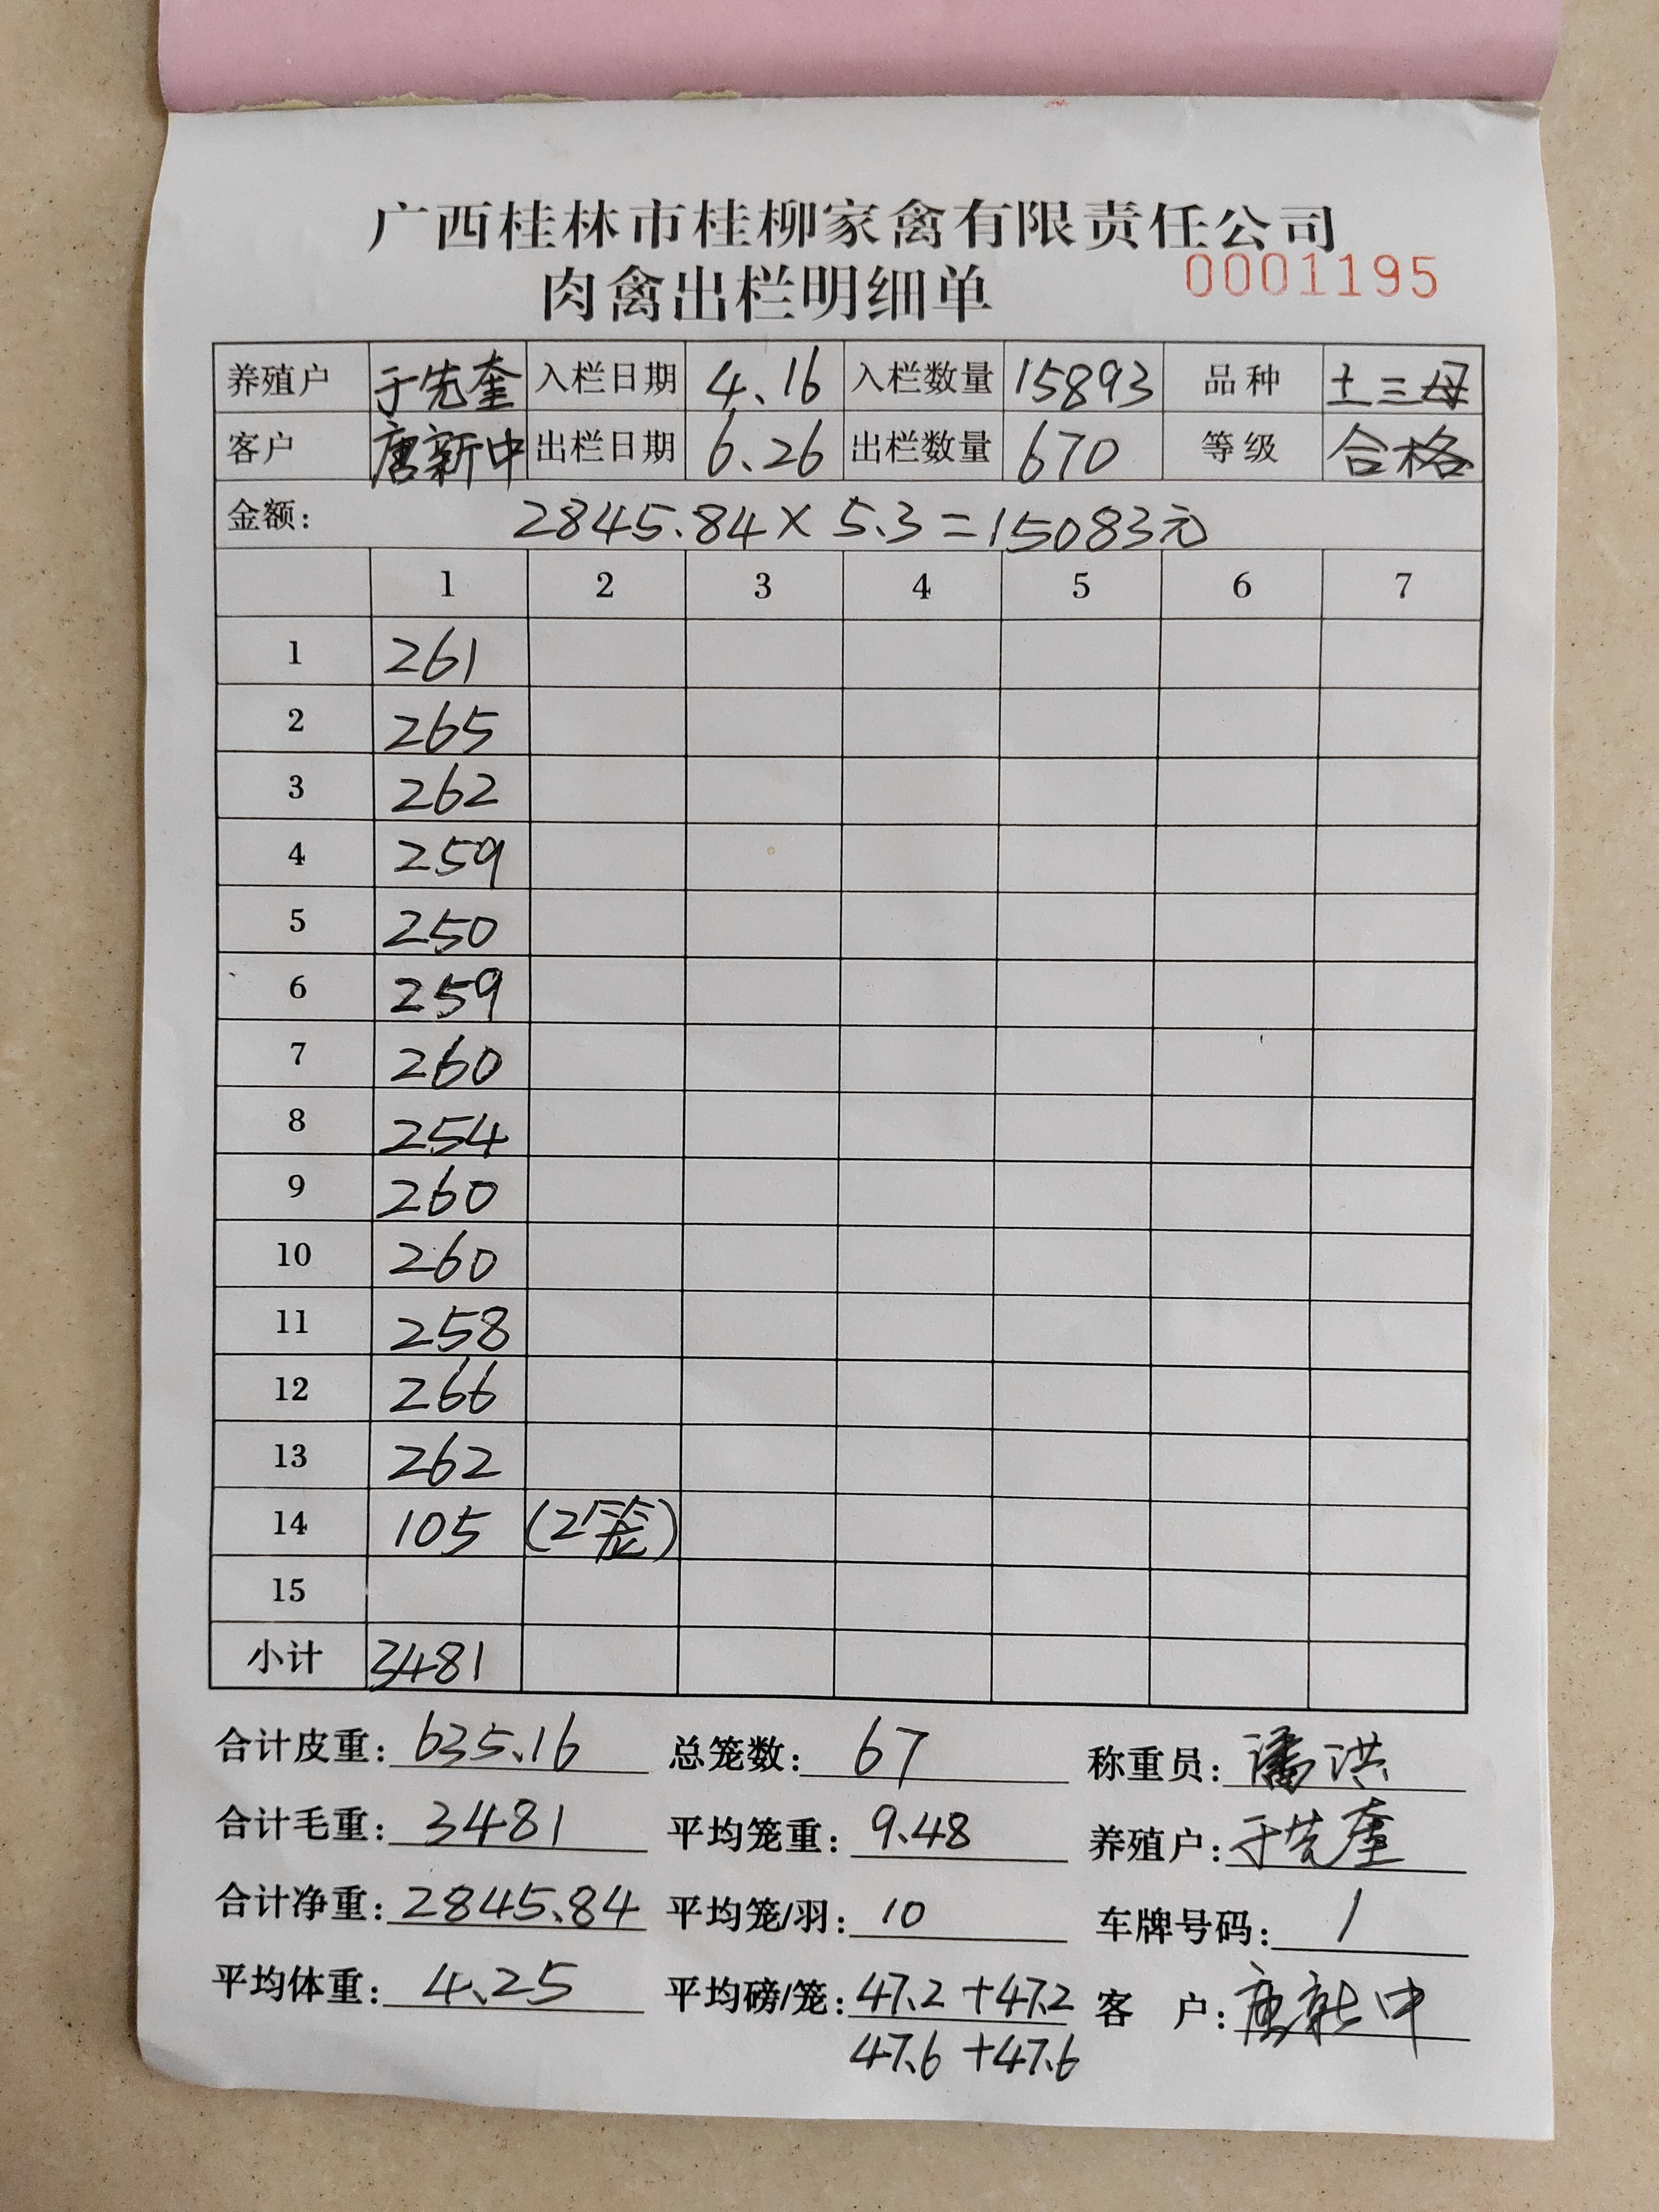 广西桂林市桂柳家禽有限责任公司
肉禽出栏明细单 0001195
养殖户 于先奎 入栏日期 4.16 入栏数量 15893 品种 土三母
客户 唐新中 出栏日期 6.26 出栏数量 670 等级 合格
金额: 2845.84×5.3=15083元
1 2 3 4 5 6 7
1 261
2 265
3 262
4 259
5 250
6 259
7 260
8 254
9 260
10 260
11 258
12 266
13 262
14 105 (2笼)
15
小计 3481
合计皮重: 635.16 总笼数: 67 称重员: 潘洪
合计毛重: 3481 平均笼重: 9.48 养殖户: 于先奎
合计净重: 2845.84 平均笼/羽: 10 车牌号码: 1
平均体重: 4.25 平均磅/笼: 47.2+47.2 客 户: 唐新中
47.6+47.6